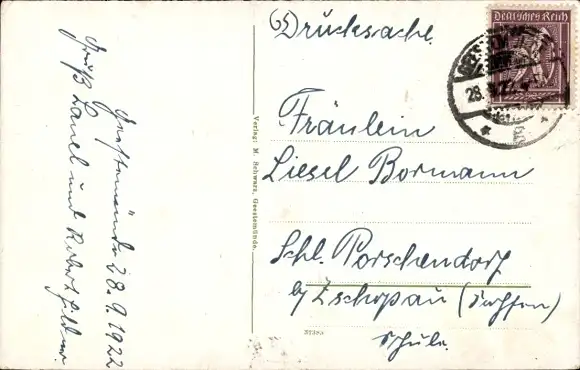 Geestemünde 28.9.1922
Gruß Lanel und Robert
Verlag: M. Schwarz, Geestemünde.
(65) Drucksache.
Deutsches Reich
28.
Fräulein
Liesel Bormann
Schl. Porschendorf
by Zschopau (Sachsen)
Schule.